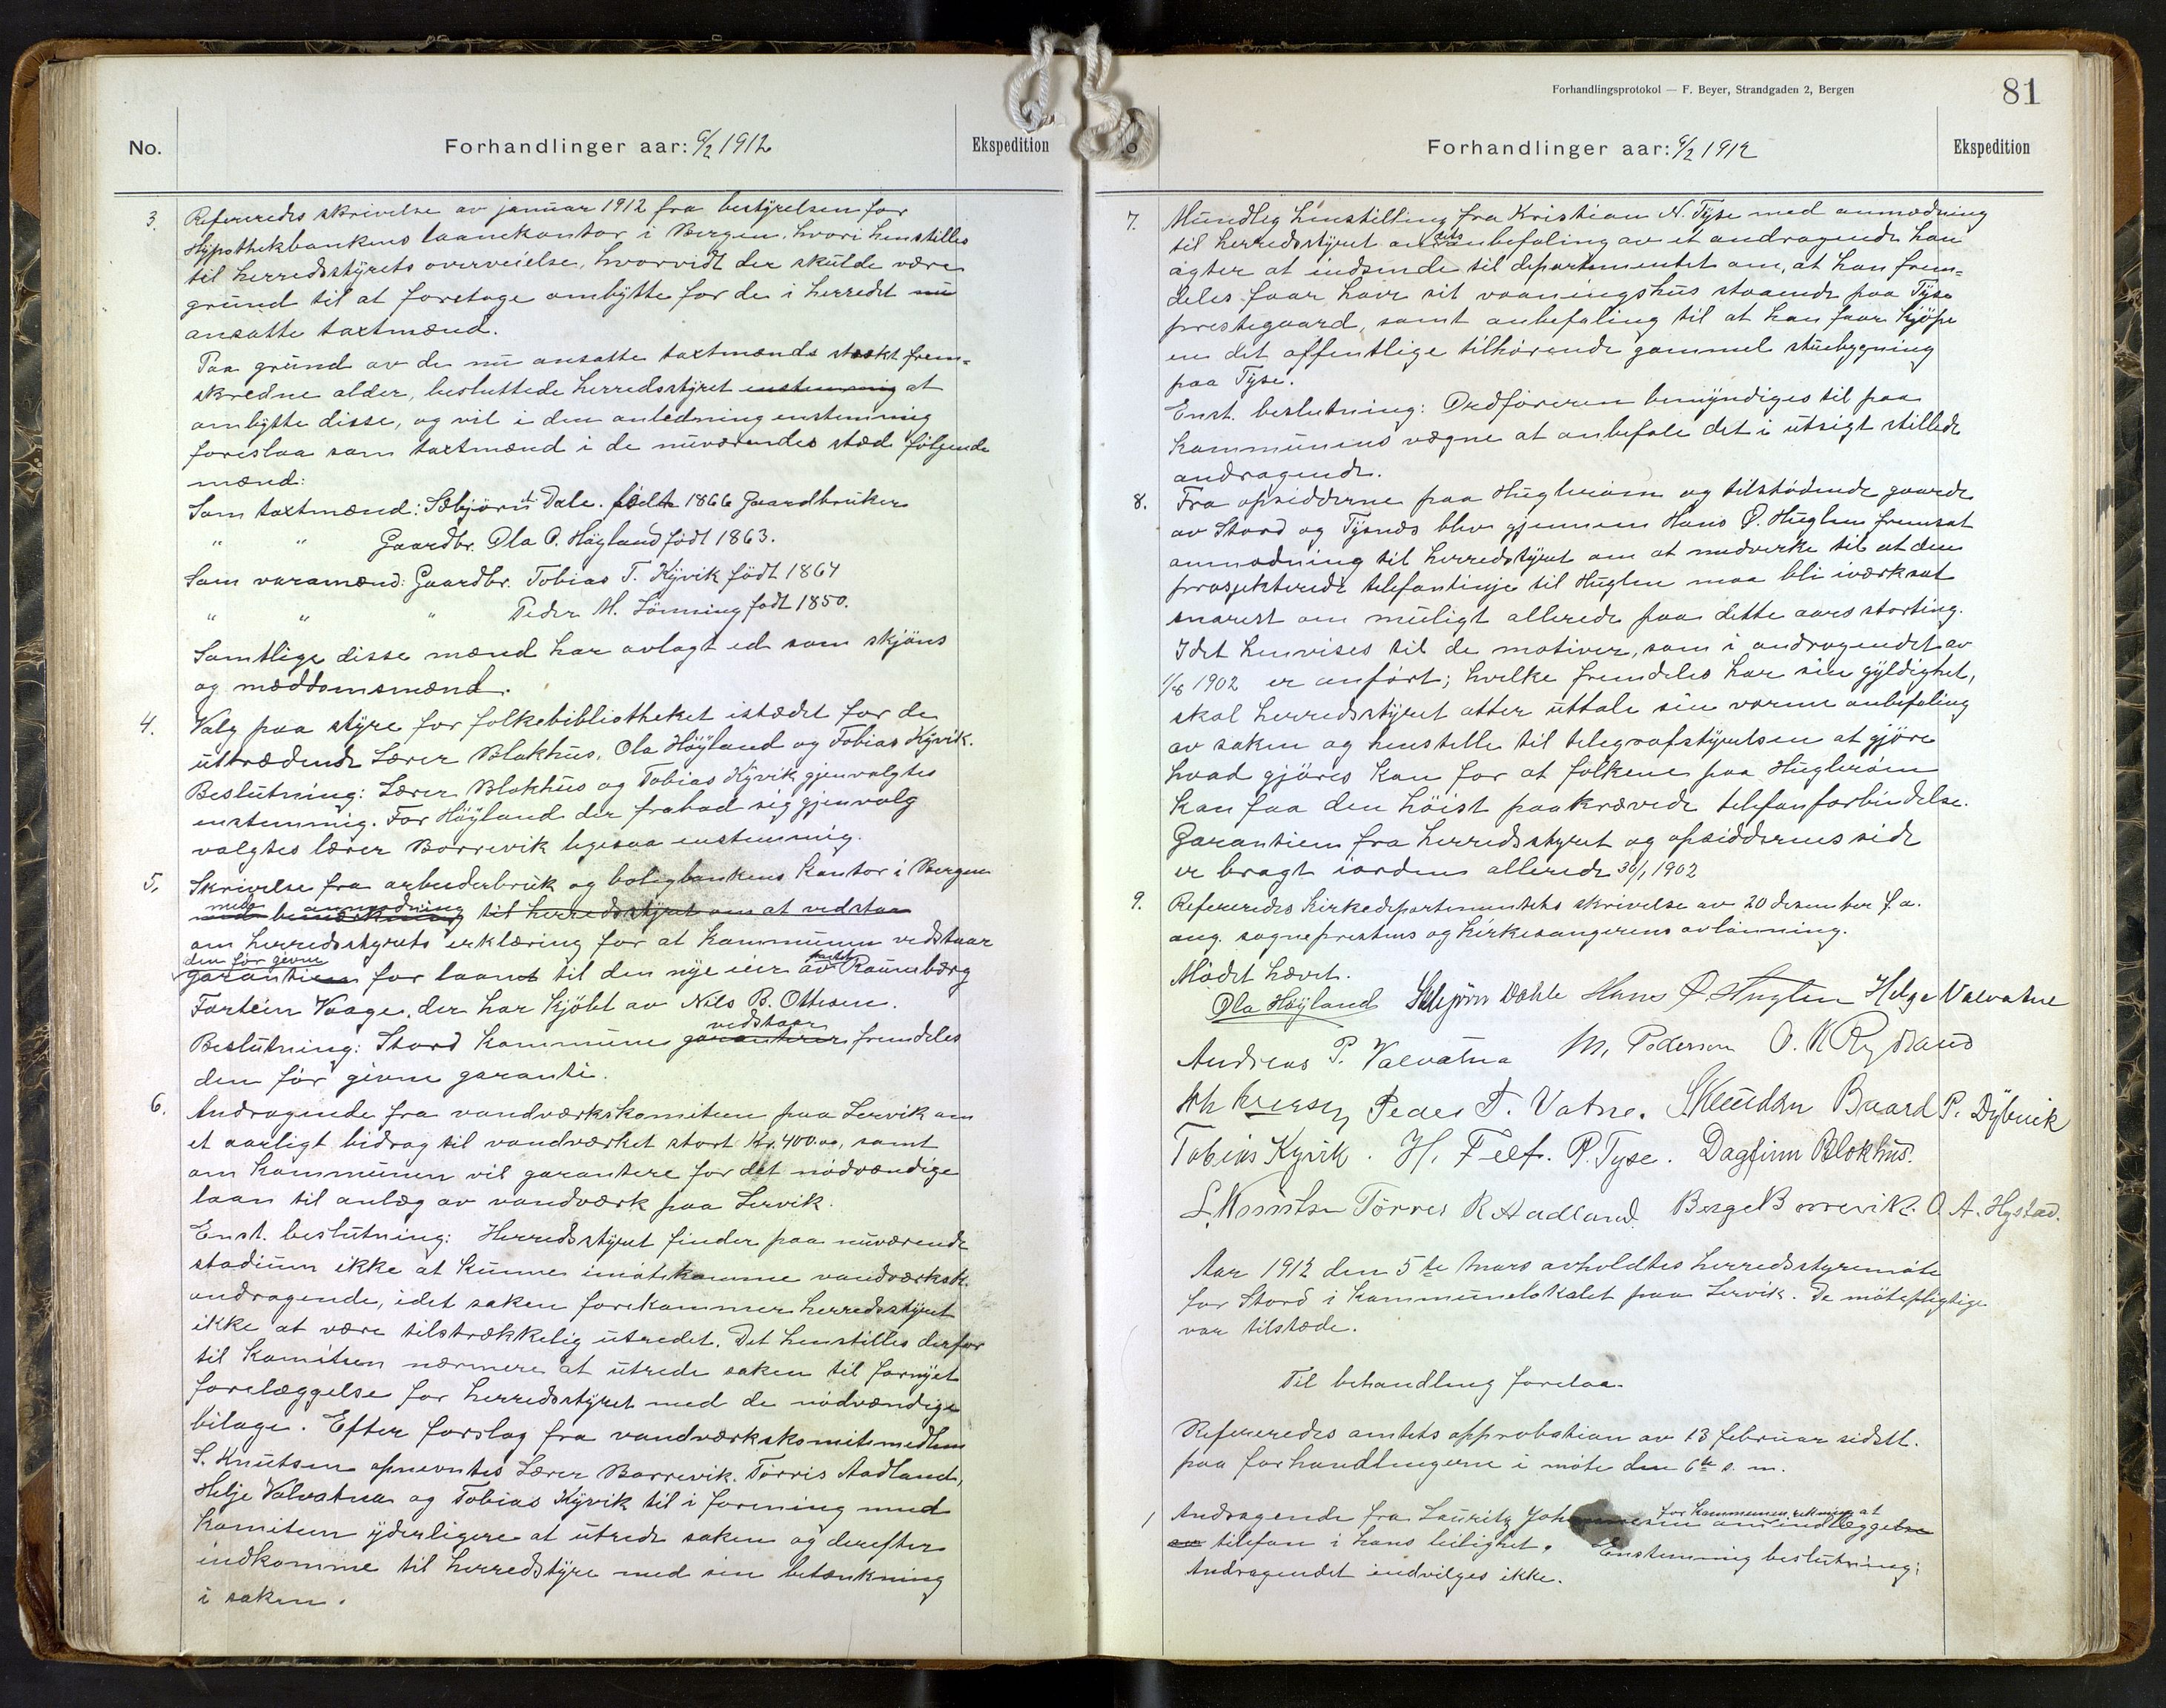 No.
Forhandlinger aar: 6/2 1912
Ekspedition
3. Refereredes skrivelse av januar 1912 fra bestyrelsen for
Hypothekbankens laanekontor i Bergen, hvori henstilles
til herredsstyrets overveielse, hvorvidt der skulde være
grund til at foretage ombytte for de i herredet nu
ansatte taxtmænd.
Paa grund av de nu ansatte taxtmænds stærkt frem=
skredne alder, besluttede herredsstyret enstemmig at
ombytte disse, og vil i den anledning enstemmig
foreslaa som taxtmænd i de nuværendes sted følgende
mænd:
Som taxtmænd: Sæbjörn Dale. född 1866 Gaardbruker
" " Gaardbr. Ola O. Höyland født 1863.
Som varamænd: Gaardbr. Tobias T. Kyvik födt 1864
" " " Peder M. Lönning födt 1850.
Samtlige disse mænd har avlagt ed som skjöns
og meddomsmænd.
4. Valg paa styre for folkebibliotheket istedet for de
uttrædende Lærer Blokhus, Ola Höyland og Tobias Kyvik.
Beslutning: Lærer Blokhus og Tobias Kyvik gjenvalgtes
enstemmig. For Höyland der frabad sig gjenvalg
valgtes lærer Borrevik ligesaa enstemmig.
5. Skrivelse fra arbeiderbruk og boligbankens Kontor i Bergen
med anmodning
med bemærkning til herredsstyret om at vedstaa
om herredsstyrets erklæring for at kommunen vedstaar
den för givne
garantien for laanet til den nye eier av Raunebærg
Fartein Vaage, der har kjöbt av Nils B. Ottesen.
vedstaar
Beslutning: Stord Kommune garanterer fremdeles
den för givne garanti.
6. Andragende fra vandværkskomiteen paa Lervik om
et aarligt bidrag til vandværket stort Kr. 400.00, samt
om Kommunen vil garantere for det nödvændige
laan til anlæg av vandværk paa Lervik.
Enst. beslutning: Herredsstyret finder paa nuværende
stadium ikke at kunne imötekomme vandværksk.
andragende, idet saken forekommer herredsstyret
ikke at være tilstrækkelig utredet. Det henstilles derfor
til Komiteen nærmere at utrede saken til fornyet
forelæggelse for herredsstyret med de nödvændige
bilage. Efter forslag fra vandværkskomitemedlem
S. Knutsen opnevntes Lærer Borrevik. Törris Aadland,
Helje Valvatna og Tobias Kyvik til i forening med
Komiteen yderligere at utrede saken og derefter
indkomme til herredsstyre med sin betænkning
i saken.
Forhandlingsprotokol — F. Beyer, Strandgaden 2, Bergen
81
Forhandlinger aar: 6/2 1912
Ekspedition
7. Mundtlig henstilling fra Kristian N. Tyse med anmodning
til herredsstyret om dets anbefaling av et andragende han
agter at indsende til departementet om, at han frem=
deles faar have sit vaaningshus staaende paa Tyse
prestegaard, samt anbefaling til at han faar kjöpe
en det offentlige tilhörende gammel stuebygning
paa Tyse.
Enst. beslutning: Ordföreren bemyndiges til paa
Kommunens vegne at anbefale det i utsigt stillede
andragende.
8. Fra opsidderne paa Huglen og tilstödende gaarde
av Stord og Tysnes blev gjennem Hans Ö. Huglen fremsat
anmodning til herredsstyret om at medvirke til at den
prosjekterede telefonlinje til Huglen maa bli iverksat
snarest om muligt allerede paa dette aars storting.
Idet henvises til de motiver, som i andragendet av
1/8 1902 er anfört; hvilke fremdeles har sin gyldighet,
skal herredsstyret atter uttale sin varme anbefaling
av saken og henstille til telegrafstyrelsen at gjöre
hvad gjöres kan for at folkene paa Huglen
kan faa den höist paakrævede telefonforbindelse.
Garantien fra herredsstyret og opsiddernes side
er bragt iorden allerede 30/1 1902
9. Refereredes Kirkedepartementets skrivelse av 20 desember f.a.
ang. sogneprestens og Kirkesangerens avlönning.
Mödet hævet.
Ola Höyland Sæbjörn Dahle Hans Ö. Huglen Helge Valvatne
Andreas P. Valvatna M. Pedersen O. K Rydland
Peder T. Vatne. Baard P. Dybvik
Tobias Kyvik. H. Feet. P. Tyse. Dagfinn Blokhus.
S. Knutsen Törres K Aadland. Berge Borrevik. O. A. Hystad.
Aar 1912 den 5te Mars avholdtes herredsstyremöte
for Stord i Kommunelokalet paa Lervik. De mötepligtige
var tilstede.
Til behandling forelaa.
Refereredes amtets approbation av 13 februar sidstl.
paa forhandlingerne i möte den 6te s. m.
for Kommunens rekning at
1 Andragende fra Lauritz Johannesen om indlæggelse
av telefon i hans leilighet. Enstemmig beslutning:
Andragendet indvilges ikke.